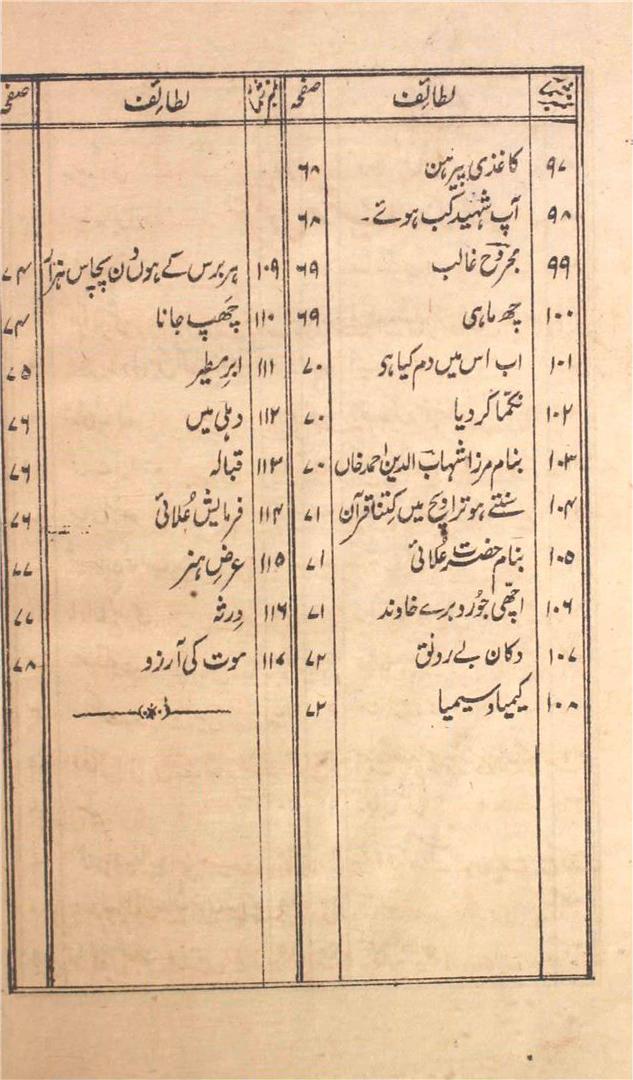 لطائف صفحہ
۹۷ کاغذی پیرہن ۶۸
۹۸ آپ شہید کب ہوئے۔ ۶۸
۹۹ مجروح غالب ۶۹
۱۰۰ چھ ماہی ۶۹
۱۰۱ اب اس میں دم کیا ہو ۷۰
۱۰۲ نکمّا کر دیا ۷۰
۱۰۳ بنام مرزا شہاب الدین احمد خاں ۷۰
۱۰۴ سنتے ہو تراویح میں کتنا قرآن ۷۱
۱۰۵ بنام حضرت عُلائی ۷۱
۱۰۶ اچھی جورو برے خاوند ۷۱
۱۰۷ دکان بے رونق ۷۲
۱۰۸ کیمیا و سیمیا ۷۲
نمبر شمار لطائف صفحہ
۱۰۹ ہر برس کے ہوں دن پچاس ہزار ۷۴
۱۱۰ چھپ جانا ۷۴
۱۱۱ ابر مطیر ۷۵
۱۱۲ دہلی میں ۷۶
۱۱۳ قبالہ ۷۶
۱۱۴ فرمایش عُلائی ۷۶
۱۱۵ عرض ہنر ۷۷
۱۱۶ ورثہ ۷۷
۱۱۷ موت کی آرزو ۷۸